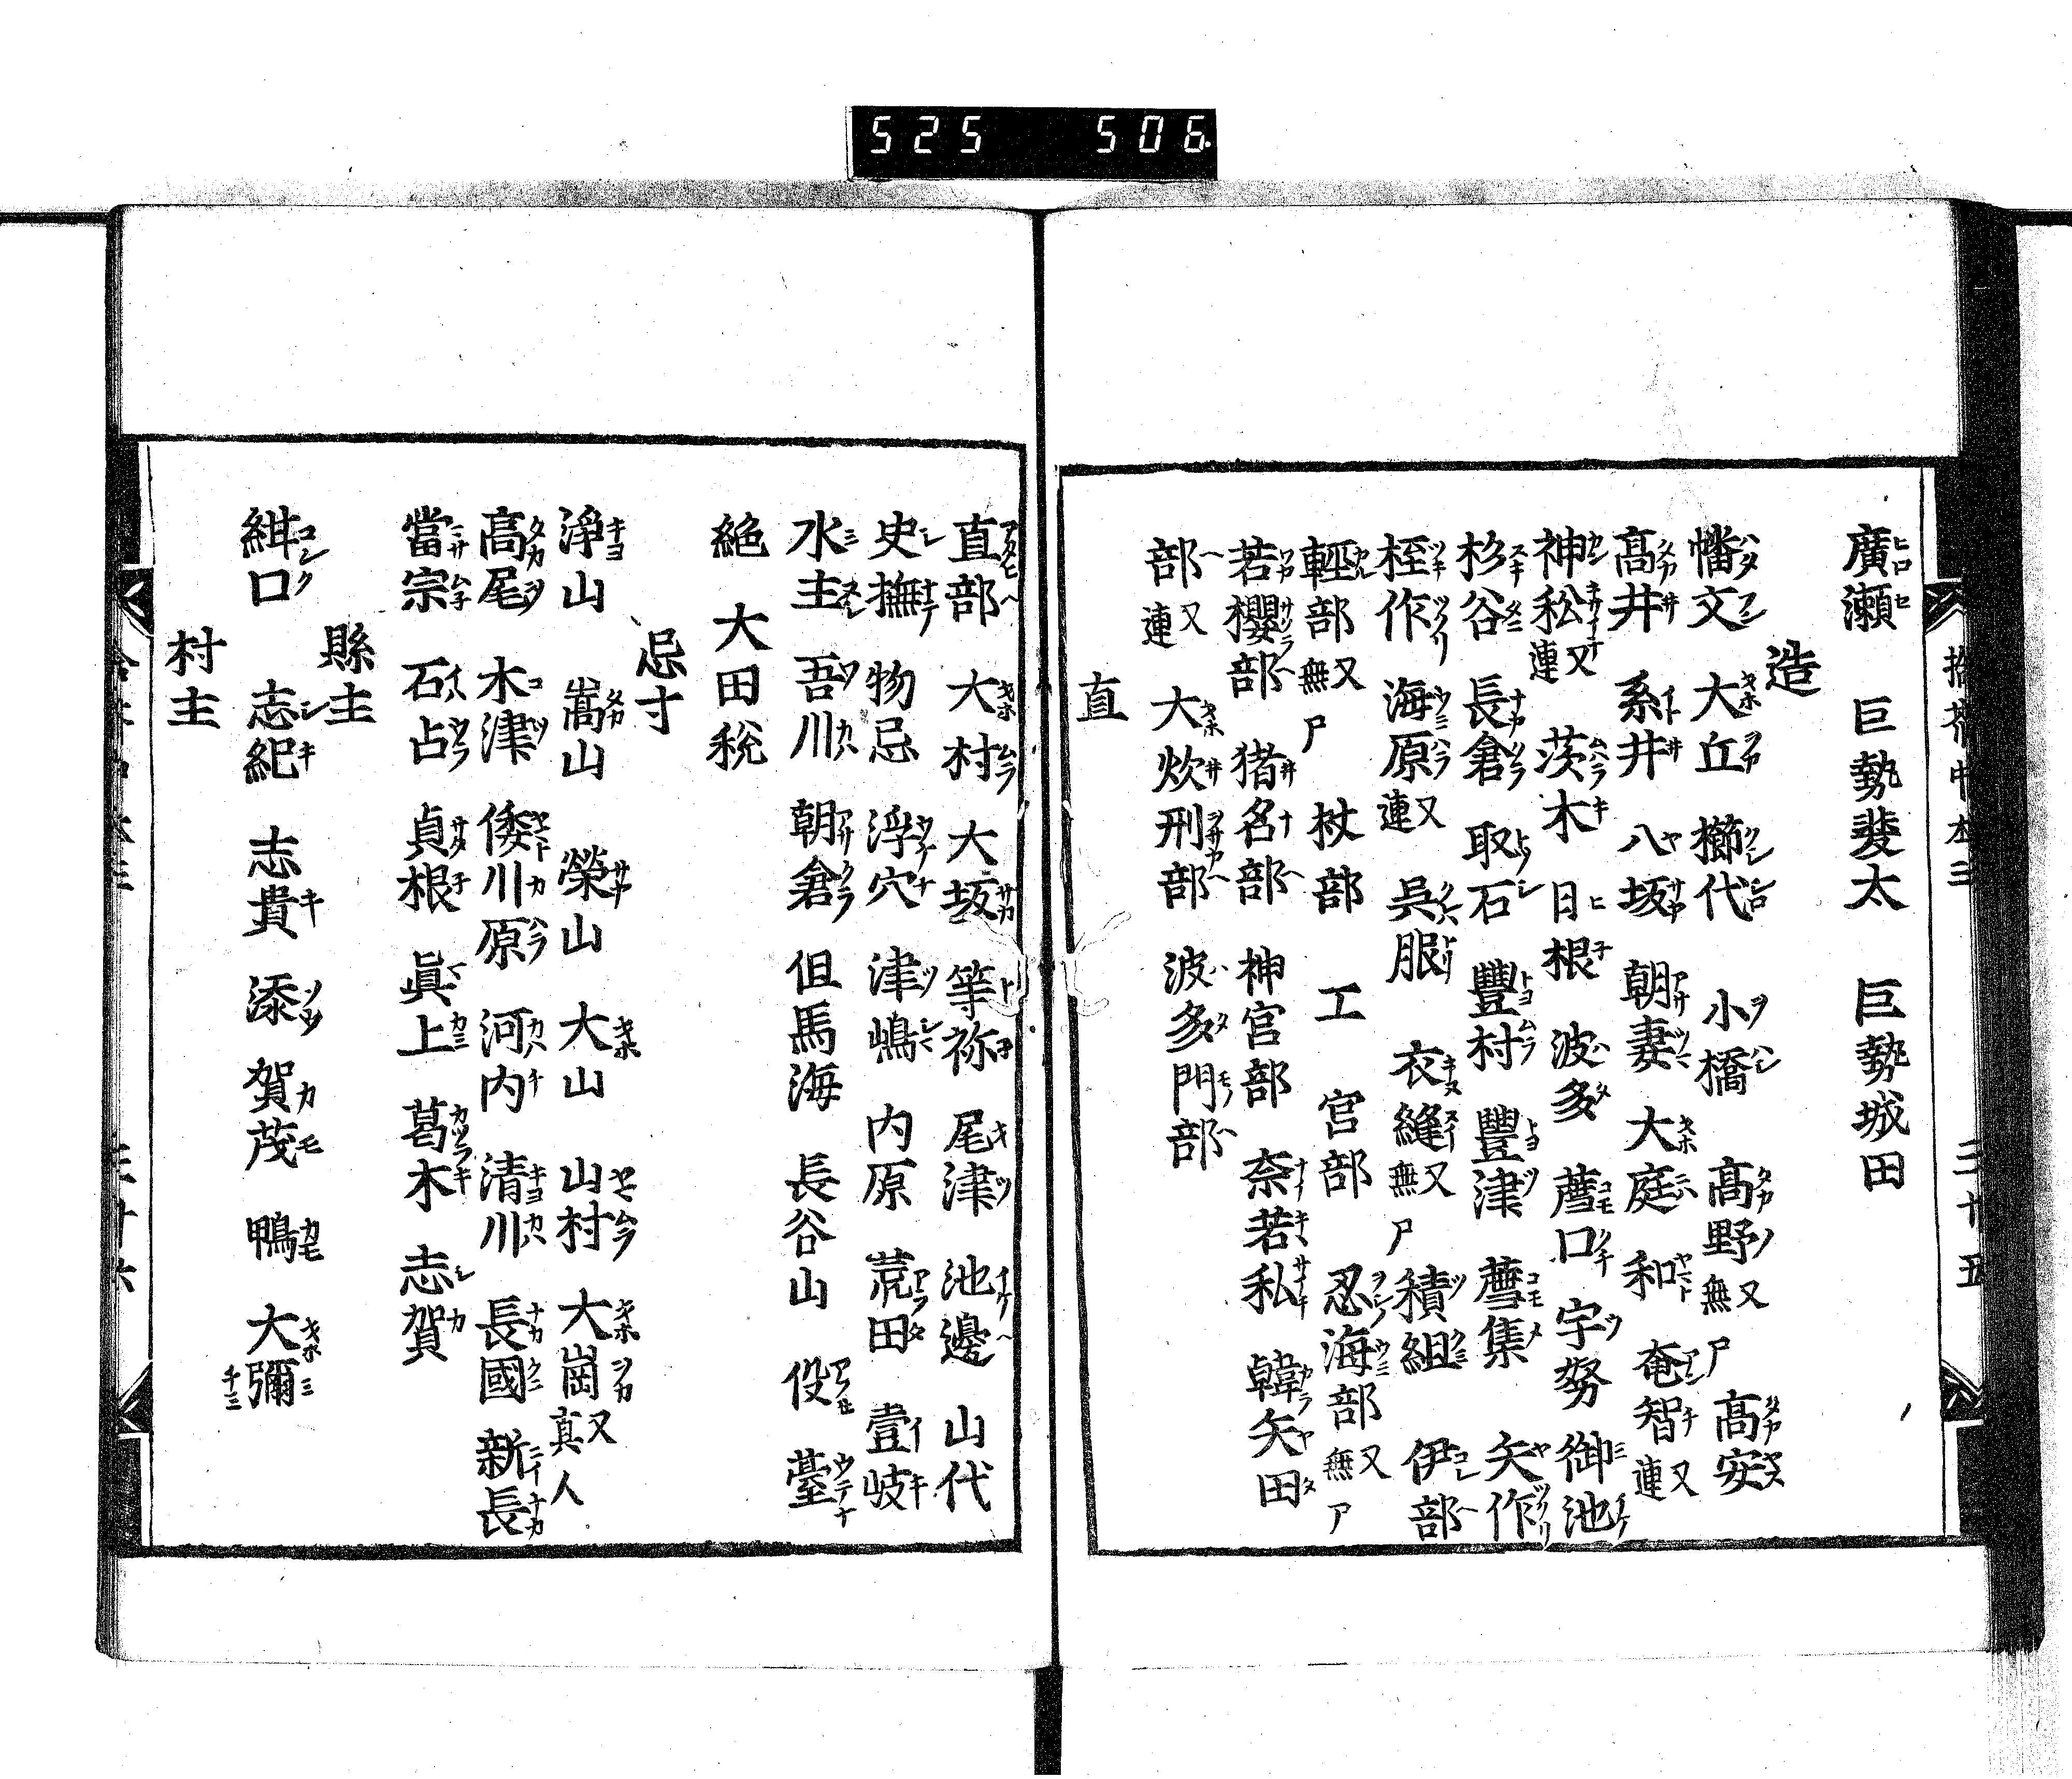 525 506
拾芥中本三 三十五
廣瀬 巨勢斐太 巨勢城田
造
幡文 大丘 櫛代 小橋 高野又無尸 高安
髙井 糸井 八坂 朝妻 大庭 和 奄智又連
神私又連 茨木 日根 波多 薦口 宇努 御池
杉谷 長倉 取石 豐村 豐津 薦集 矢作
桎作 海原又連 呉服 衣縫又無尸 積組 伊部
輕部又無尸 杖部 工 宮部 忍海部又無尸
若櫻部 猪名部 神宮部 奈若私 韓矢田
部又連 大炊刑部 波多門部
直
直部 大村 大坂 等祢 尾津 池邊 山代
史撫 物忌 浮穴 津嶋 内原 荒田 壹岐
水主 吾川 朝倉 但馬海 長谷山 役 臺
絶 大田税
忌寸
淨山 嵩山 榮山 大山 山村 大崗又真人
高尾 木津 倭川原 河内 清川 長國 新長
當宗 石占 貞根 眞上 葛木 志賀
縣主
紺口 志紀 志貴 添 賀茂 鴨 大彌
村主